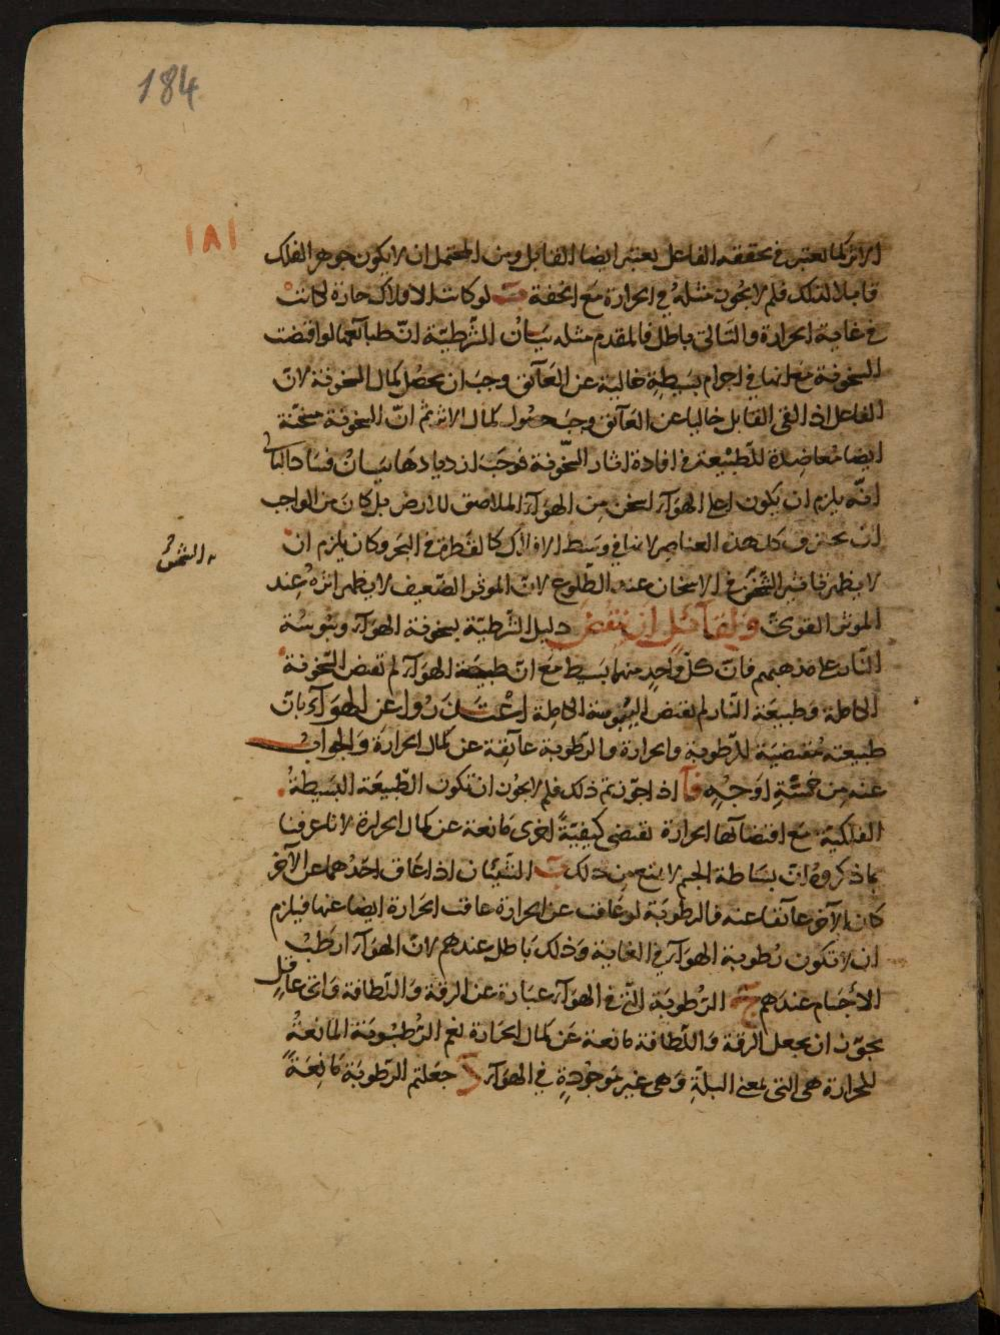 184
١٨١
الاثر كما يعتبر فى تحققه الفاعل يعتبر ايضا القابل ومن المحتمل ان لا يكون جوهر الفلك
قابلا لذلك فلم لا يجوز مثله فى الحرارة مع الخفة ب لو كانت الافلاك حارة لكانت
فى غاية الحرارة والتالى باطل فالمقدم مثله بيان الشرطيّة انّ طبائعها لو اقتضت
السخونة مع انها فى اجرام بسيطةٍ خالية عن العآئق وجب ان يحصل كمال السخونة لانّ
الفاعل اذا لقى القابل خاليا عن العآئق وجب حصول كمال الاثر ثم انّ السخونة مسخّنة
ايضا مُعاضِدة للطّبيعة فى افادة اثار السّخونة فوجب ازديادها بيانُ فساد التالى
انّه يلزم ان يكون اعلى الهوآء اسخن مِن الهوآء الملاصق للارض بل كان من الواجب
ان يحترق كل هذه العناصر لانها فى وسط الافلاك كالقطرة فى البحر وكان يلزم ان
لا يظهر تاثير الشمس فى الاسخان عند الطّلوع لانّ الموثر الضّعيف لا يظهر اثرهُ عِند
الموثر القوىّ وَلِقآئلٍ ان ينقضَ دليل الشرطيّة بسخونة الهوآء ويبوسَة
النّار على مذهبهم فانّ كلّ واحِدٍ منهما بسيط مع انّ طبيعَة الهوَآء لم تقتض السّخونة
الكاملة وطبيعَة النّار لم تقتض اليُبوسة الكاملة اعْتَذَرُوا عن الهوَآء بانّ
طبيعته مُقتضيَة للرّطوبة والحرارة والرّطوبة عآئقة عن كمال الحرارة وَالجوابُ
عنه مِن خمسَةِ اَوجُهٍ آ اذا جوّزتم ذلك فلم لا يجوز ان تكون الطّبيعَة البَسيطةُ
الفلكيّة مع اقتضآئها الحرارة تقتضى كيفيّةً اخرى مَانعة عن كمال الحرارة لانا عرفنا
بما ذكروهُ انّ بسَاطة الجسم لا تمنع مِن ذلك ب الشّيئان اذا عَاق احَدُهما عن الآخر
كان الآخر عآئقا عنه فالرطوبَة لو عَاقت عن الحرارة عاقت الحرارة ايضا عنها فيلزم
ان لا تكون رُطوبة الهوَآء فى الغاية وَذلك بَاطل عندهم لانّ الهوَآء ارطبُ
الأجسام عندهم ج الرّطوبَة الّتى فى الهوَآء عبَارة عن الرقّة وَاللّطافة وَاىّ عاقلٍ
يجوّز ان يجعل الرقة وَاللّطافة مانعة عَن كمال الحَرارة نعم الرُطُوبَة المانعةُ
للحرارة هى التى بمعنى البلّةِ وَهى غير مَوجُودةٍ فى الهوآء د جعلتم الرّطوبَة مَانِعَةً
الشمسُ